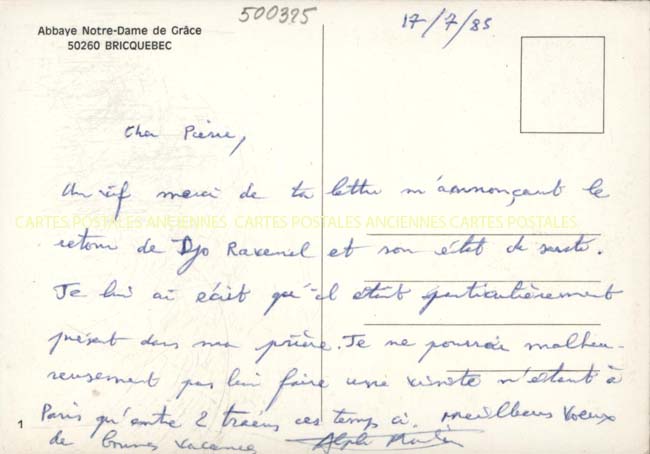 500325
17/7/85
Abbaye Notre-Dame de Grâce
50260 BRICQUEBEC
Cher Pierre,
Un vif merci de ta lettre m'annonçant le
CARTES POSTALES ANCIENNES CARTES POSTALES ANCIENNES CARTES POSTALES
retour de Djo Ravenel et son état de santé.
Je lui ai écrit qu'il était particulièrement
présent dans ma prière. Je ne pourrai malheu-
reusement pas lui faire une visite n'étant à
Paris qu'entre 2 trains ces temps ci. Meilleurs Voeux
1
de bonnes vacances